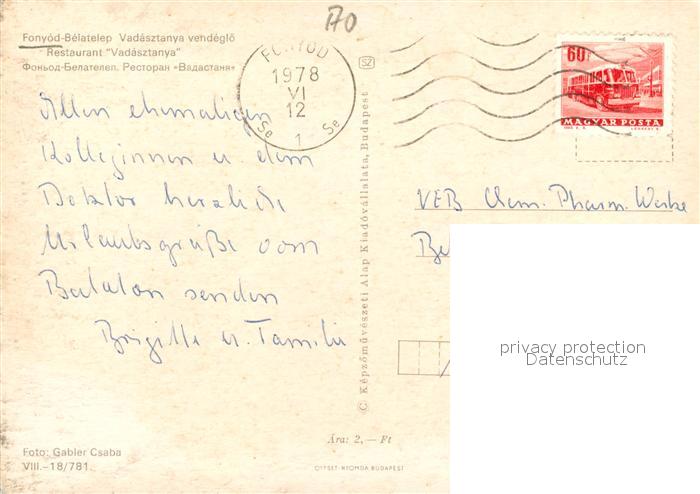 170
Fonyód-Bélatelep Vadásztanya vendéglő
Restaurant "Vadásztanya"
Фоньод-Белателеп. Ресторан «Вадастаня»
FONYÓD
1978
VI
12
Se Se
1
SZ
60f
MAGYAR POSTA
Allen ehemaligen
Kolleginnen u dem
Doktor herzliche
Urlaubsgrüße vom
Balaton senden
Brigitte u. Familie
© Képzőművészeti Alap Kiadóvállalata, Budapest
VEB Chem. Pharm. Werke
Be
privacy protection
Datenschutz
Ára: 2,— Ft
Foto: Gabler Csaba
VIII.–18/781.
OFFSET-NYOMDA BUDAPEST